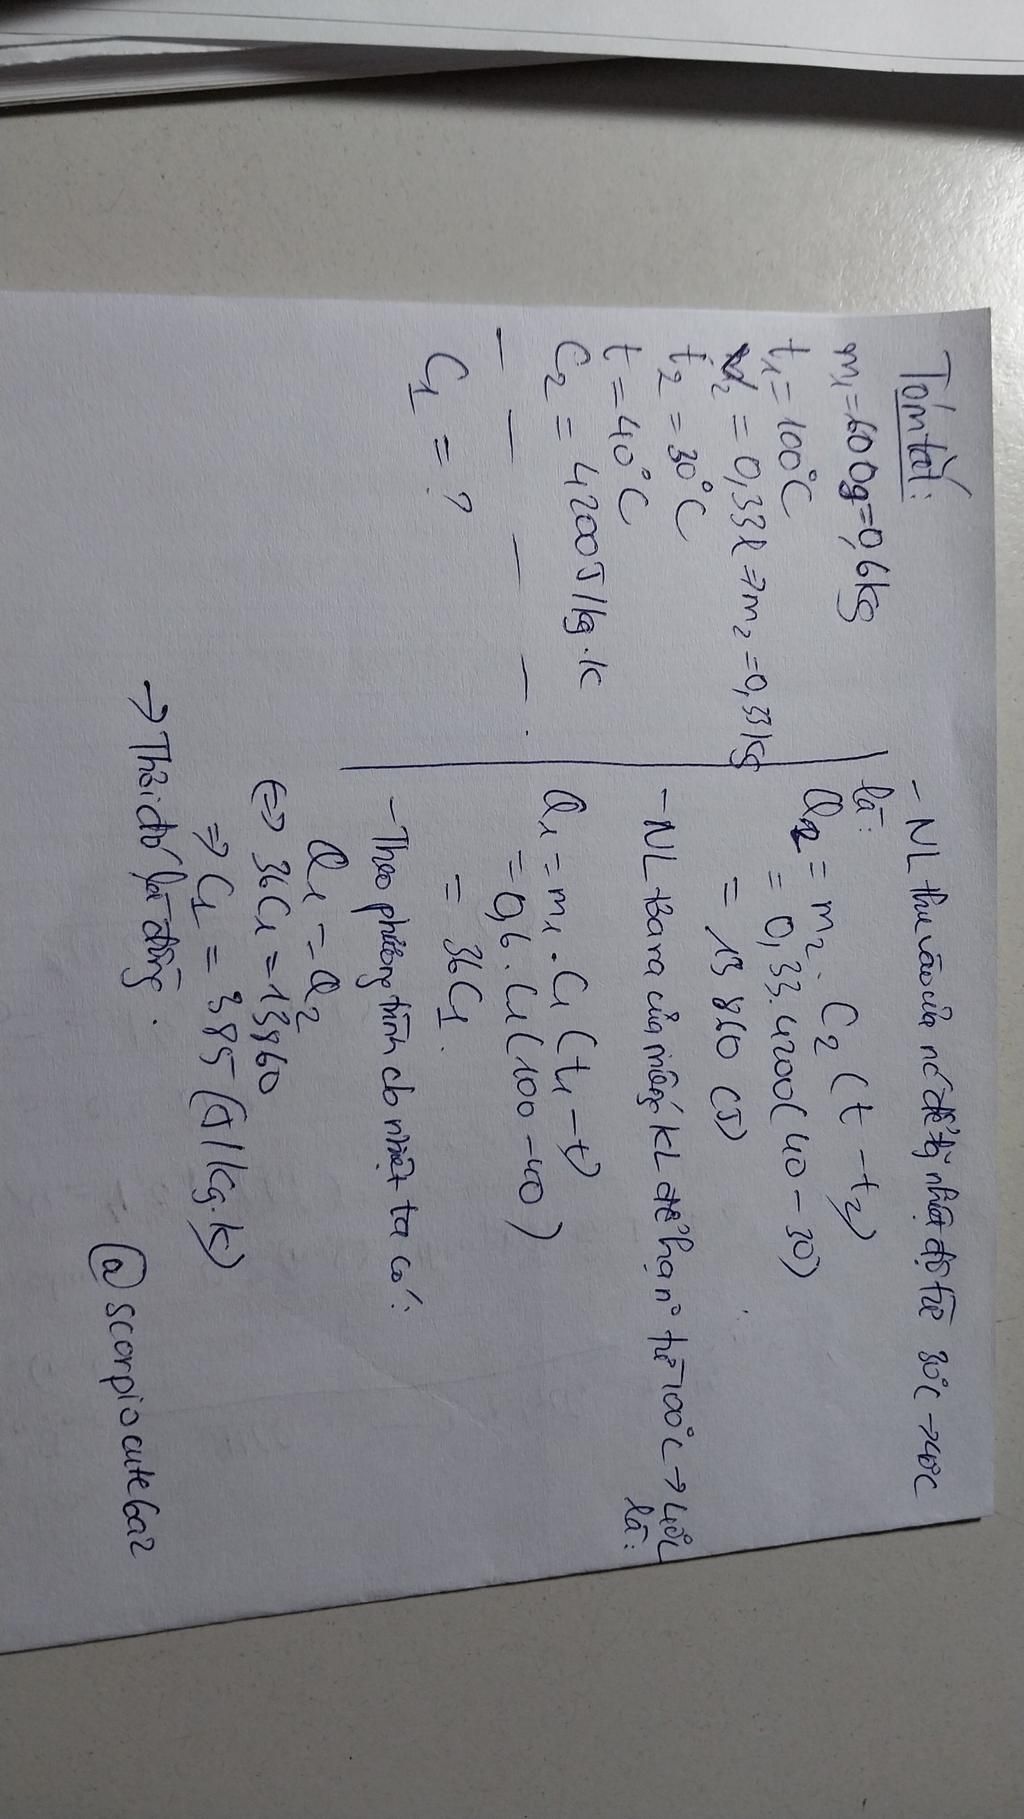 Tóm tắt:
m₁=600g=0,6kg
t₁=100°C
V₂=0,33l⇒m₂=0,33kg
t₂=30°C
t=40°C
C₂=4200J/kg.k
C₁=?
- NL thu vào của nc để tăng nhiệt độ từ 30°C→40°C
là:
Q₂=m₂.C₂(t-t₂)
=0,33.4200(40-30)
=13860(J)
- NL tỏa ra của miếng KL để hạ n° từ 100°C→40°C
là:
Q₁=m₁.C₁(t₁-t)
=0,6.C₁(100-40)
=36C₁.
- Theo phương trình cb nhiệt ta có:
Q₁=Q₂
⇔36C₁=13860
⇒C₁=385(J/kg.k)
→ Thỏi đó là đồng.
@scorpiocute6a2